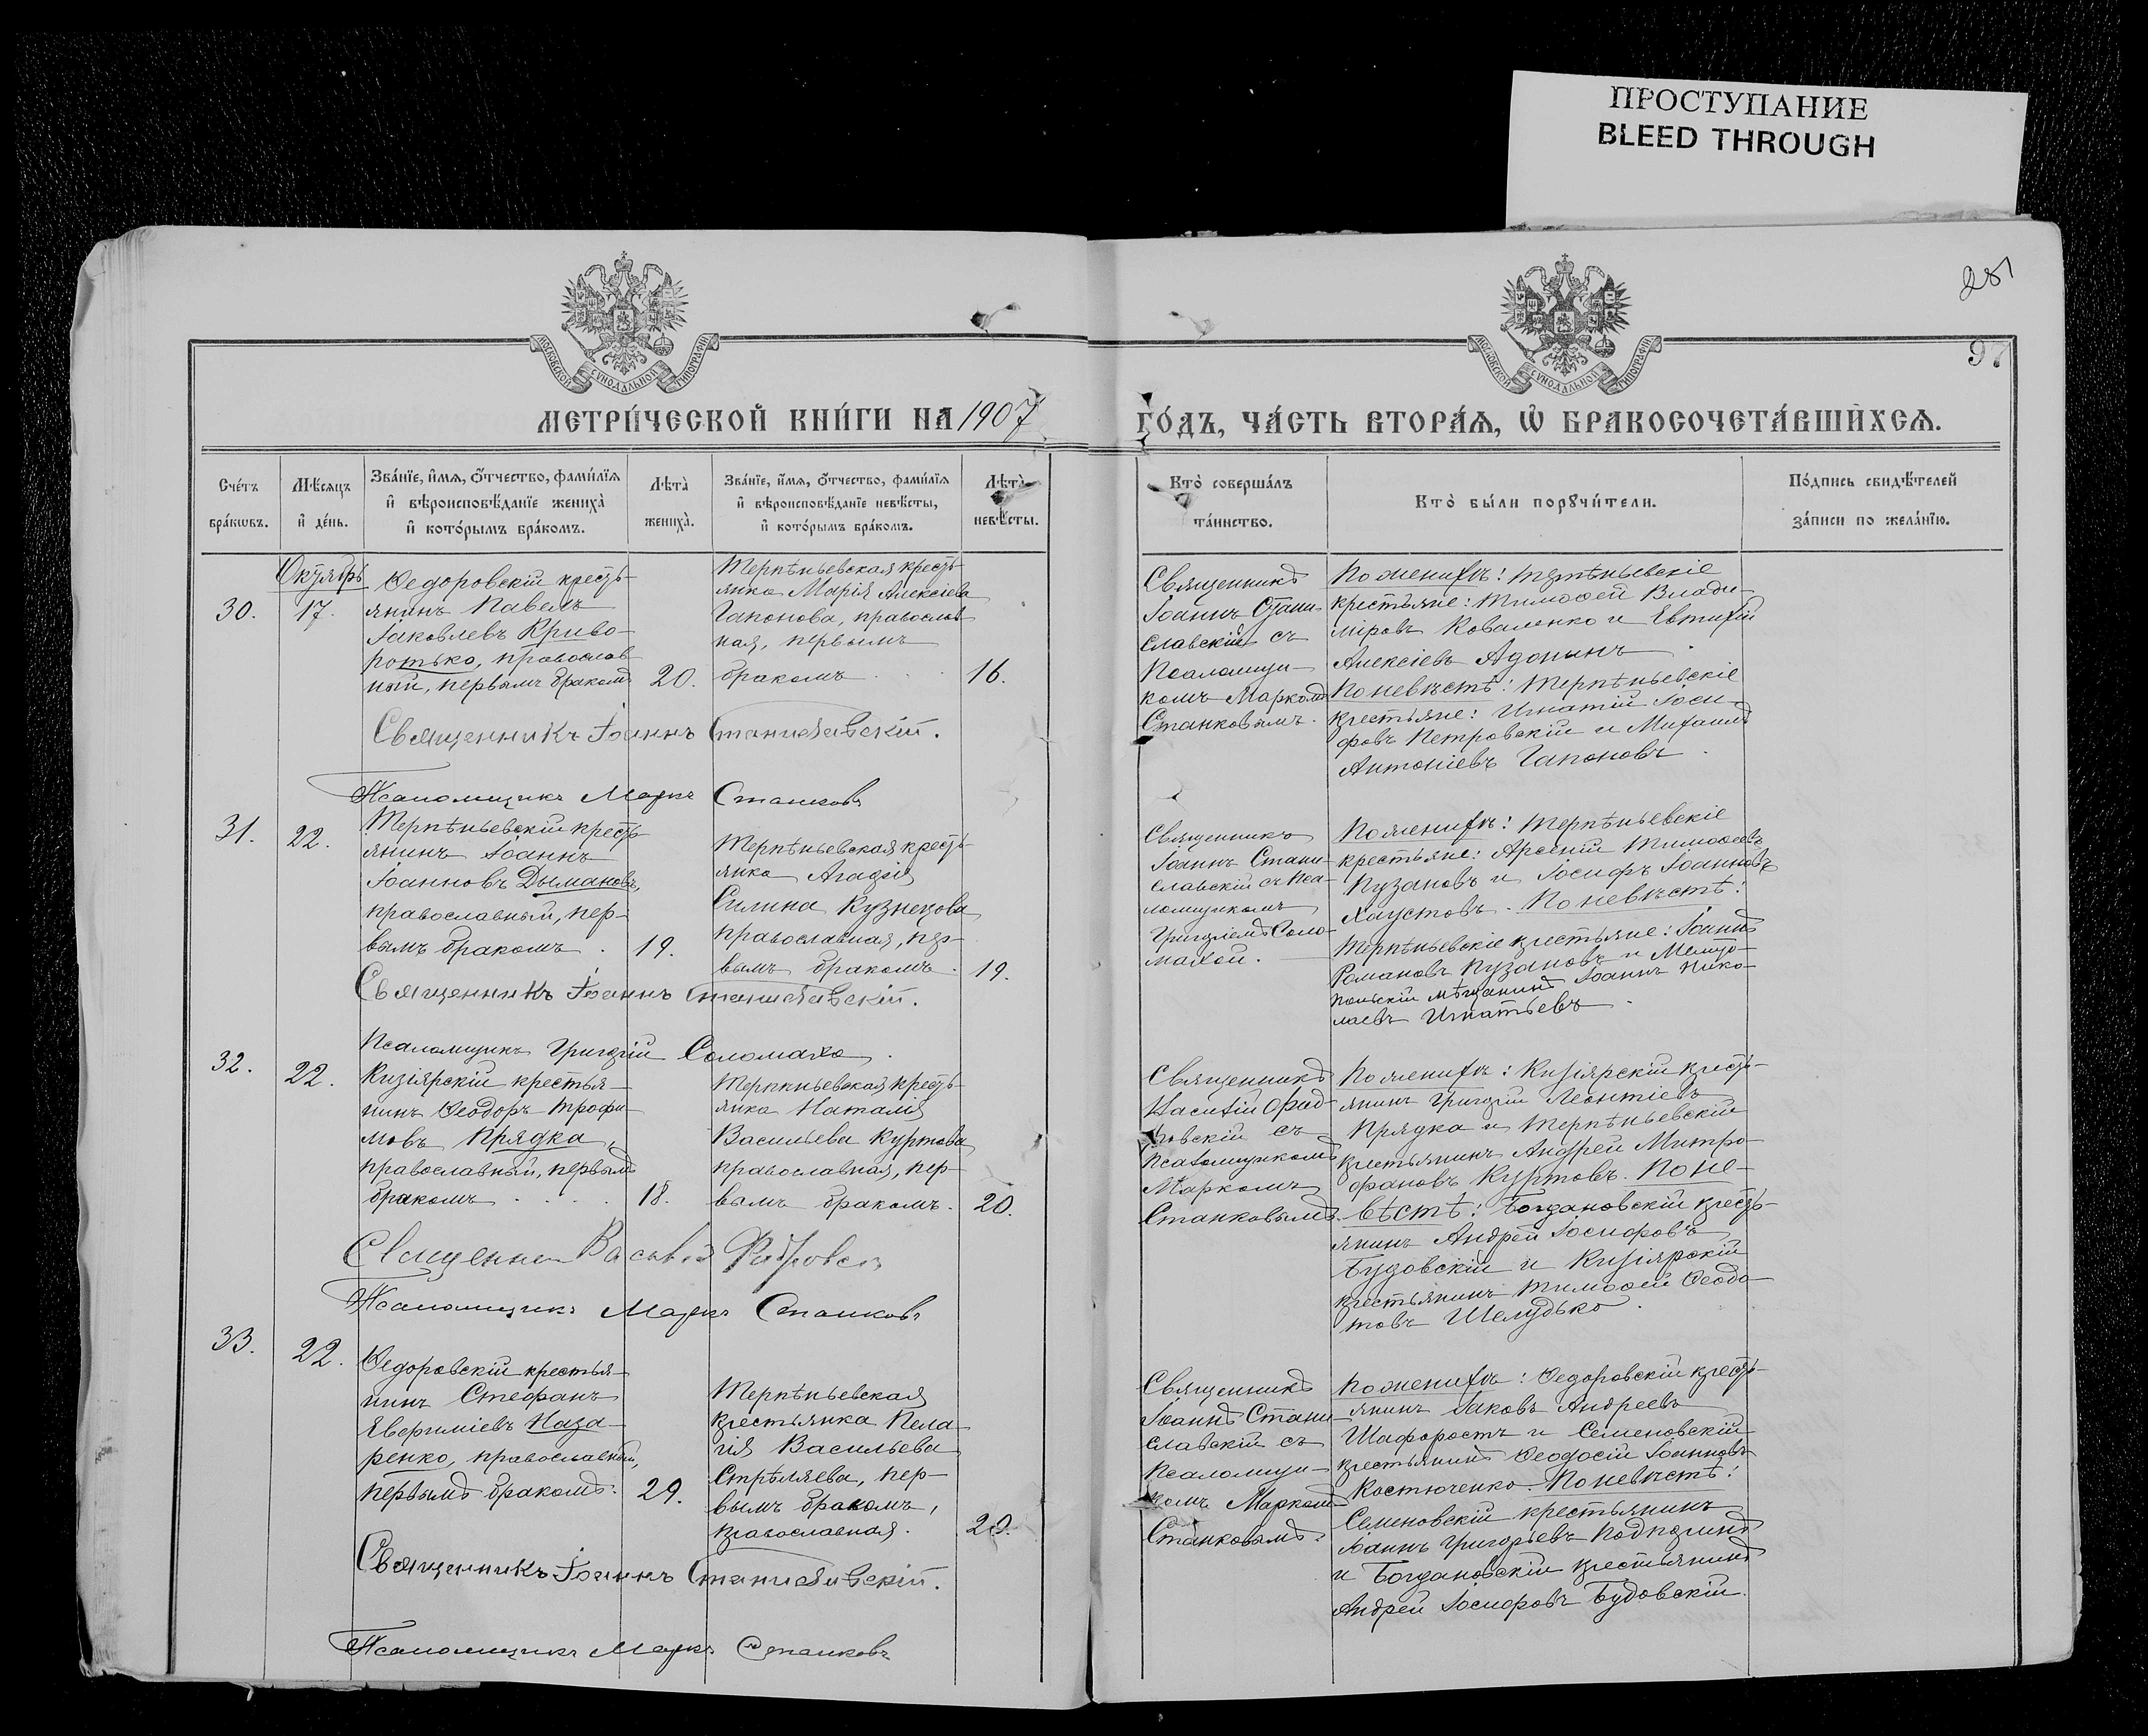 ПРОСТУПАНИЕ
BLEED THROUGH
281
МОСКОВСКОЙ СѴНОДАЛЬНОЙ ТИПОГРАФІИ
МОСКОВСКОЙ СѴНОДАЛЬНОЙ ТИПОГРАФІИ
МЕТРИ́ЧЕСКОЙ КНИ́ГИ НА 1907
ГО́ДЪ, ЧА́СТЬ ВТОРА́Ѧ, Ѡ҆ БРАКОСОЧЕТА́ВШИХСѦ.
Сче́тъ
бра́кѡвъ.
Мѣ́сѧцъ
и҆ де́нь.
Зва́нїе, и҆́мѧ, ѻ҆́тчество, фами́лїѧ
и҆ вѣроисповѣ́данїе жениха̀
и҆ кото́рымъ бра́комъ.
Лѣта̀
жениха̀.
Зва́нїе, и҆́мѧ, ѻ҆́тчество, фами́лїѧ
и҆ вѣроисповѣ́данїе невѣ́сты,
и҆ кото́рымъ бра́комъ.
Лѣта̀
невѣ́сты.
Кто̀ соверша́лъ
та́инство.
Кто̀ бы́ли порꙋчи́тели.
По́дпись свидѣ́телей
за́писи по жела́нїю.
Октябрь
30.
17.
Ѳедоровскій кресть-
янинъ Павелъ
Іаковлевъ Криво-
ротько, православ
ный, первымъ бракомъ
20.
Терпѣньевская кресть-
янка Марія Алексіева
Гапонова, православ
ная, первымъ
бракомъ
16.
Священникъ
Іоаннъ Стани-
славскій съ
Псаломщи-
комъ Маркомъ
Станковымъ.
По женихѣ: Терпѣньевскіе
крестьяне: Тимоѳей Влади-
міровъ Коваленко и Евтихій
Алексіевъ Адонинъ
По невѣстѣ: Терпѣньевскіе
крестьяне: Игнатій Іоси-
фовъ Петровскій и Михаилъ
Антоніевъ Гапоновъ
Священникъ Іоаннъ Станиславскій.
Псаломщикъ Маркъ Станковъ
31.
22.
Терпѣньевскій кресть-
янинъ Іоаннъ
Іоанновъ Дымановъ,
православный, пер-
вымъ бракомъ
19.
Терпѣньевская кресть-
янка Агафія
Силина Кузнецова
православная, пер-
вымъ бракомъ.
19.
Священникъ
Іоаннъ Стани-
славскій съ Пса-
ломщикомъ
Григоріемъ Соло-
махой.
По женихѣ: Терпѣньевскіе
крестьяне: Арсеній Тимоѳеевъ
Пузановъ и Іосифъ Іоанновъ
Хаустовъ. По невѣстѣ:
Терпѣньевскіе крестьяне: Іоаннъ
Романовъ Пузановъ и Мелито-
польскій мѣщанинъ Іоаннъ Нико-
лаевъ Игнатьевъ
Священникъ Іоаннъ Станиславскій.
Псаломщикъ Григорій Соломаха
32.
22.
Кизіярскій крестья-
нинъ Ѳеодоръ Трофи-
мовъ Прядка,
православный, первымъ
бракомъ
18.
Терпѣньевская кресть-
янка Наталія
Васильева Куртова
православная, пер-
вымъ бракомъ.
20.
Священникъ
съ
Псаломщикомъ
Маркомъ
Станковымъ.
По женихѣ: Кизіярскій кресть-
янинъ Григорій Леонтіевъ
Прядка и Терпѣньевскій
крестьянинъ Андрей Митро-
фановъ Куртовъ. По не-
вѣстѣ: Богдановскій кресть-
янинъ Андрей Іосифовъ
Будовскій и Кизіярскій
крестьянинъ Тимоѳей Ѳеодо-
товъ Шелудько
Псаломщикъ Маркъ Станковъ
33.
22.
Ѳедоровскій крестья-
нинъ Стефанъ
Евѳиміевъ Наза-
ренко, православный,
первымъ бракомъ.
29.
Терпѣньевская
крестьянка Пела-
гія Васильева
Стрѣляева, пер-
вымъ бракомъ,
православная.
Священникъ
Іоаннъ Стани-
славскій съ
Псаломщи-
комъ Маркомъ
Станковымъ.
По женихѣ: Ѳедоровскій кресть-
янинъ Іаковъ Андреевъ
Шафоростъ и Семеновскій
крестьянинъ Ѳеодосій Іоанновъ
Костюченко. По невѣстѣ:
Семеновскій крестьянинъ
Іоаннъ Григорьевъ
и Богдановскій крестьянинъ
Андрей Іосифовъ Будовскій.
Священникъ Іоаннъ Станиславскій.
Псаломщикъ Маркъ Станковъ